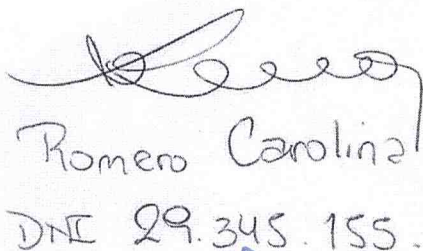 Romero Carolina
DNI 29.345.155.